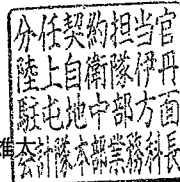 分任契約担当官
陸上自衛隊伊丹
駐屯地中部方面
会計隊本部業務科長
雄大